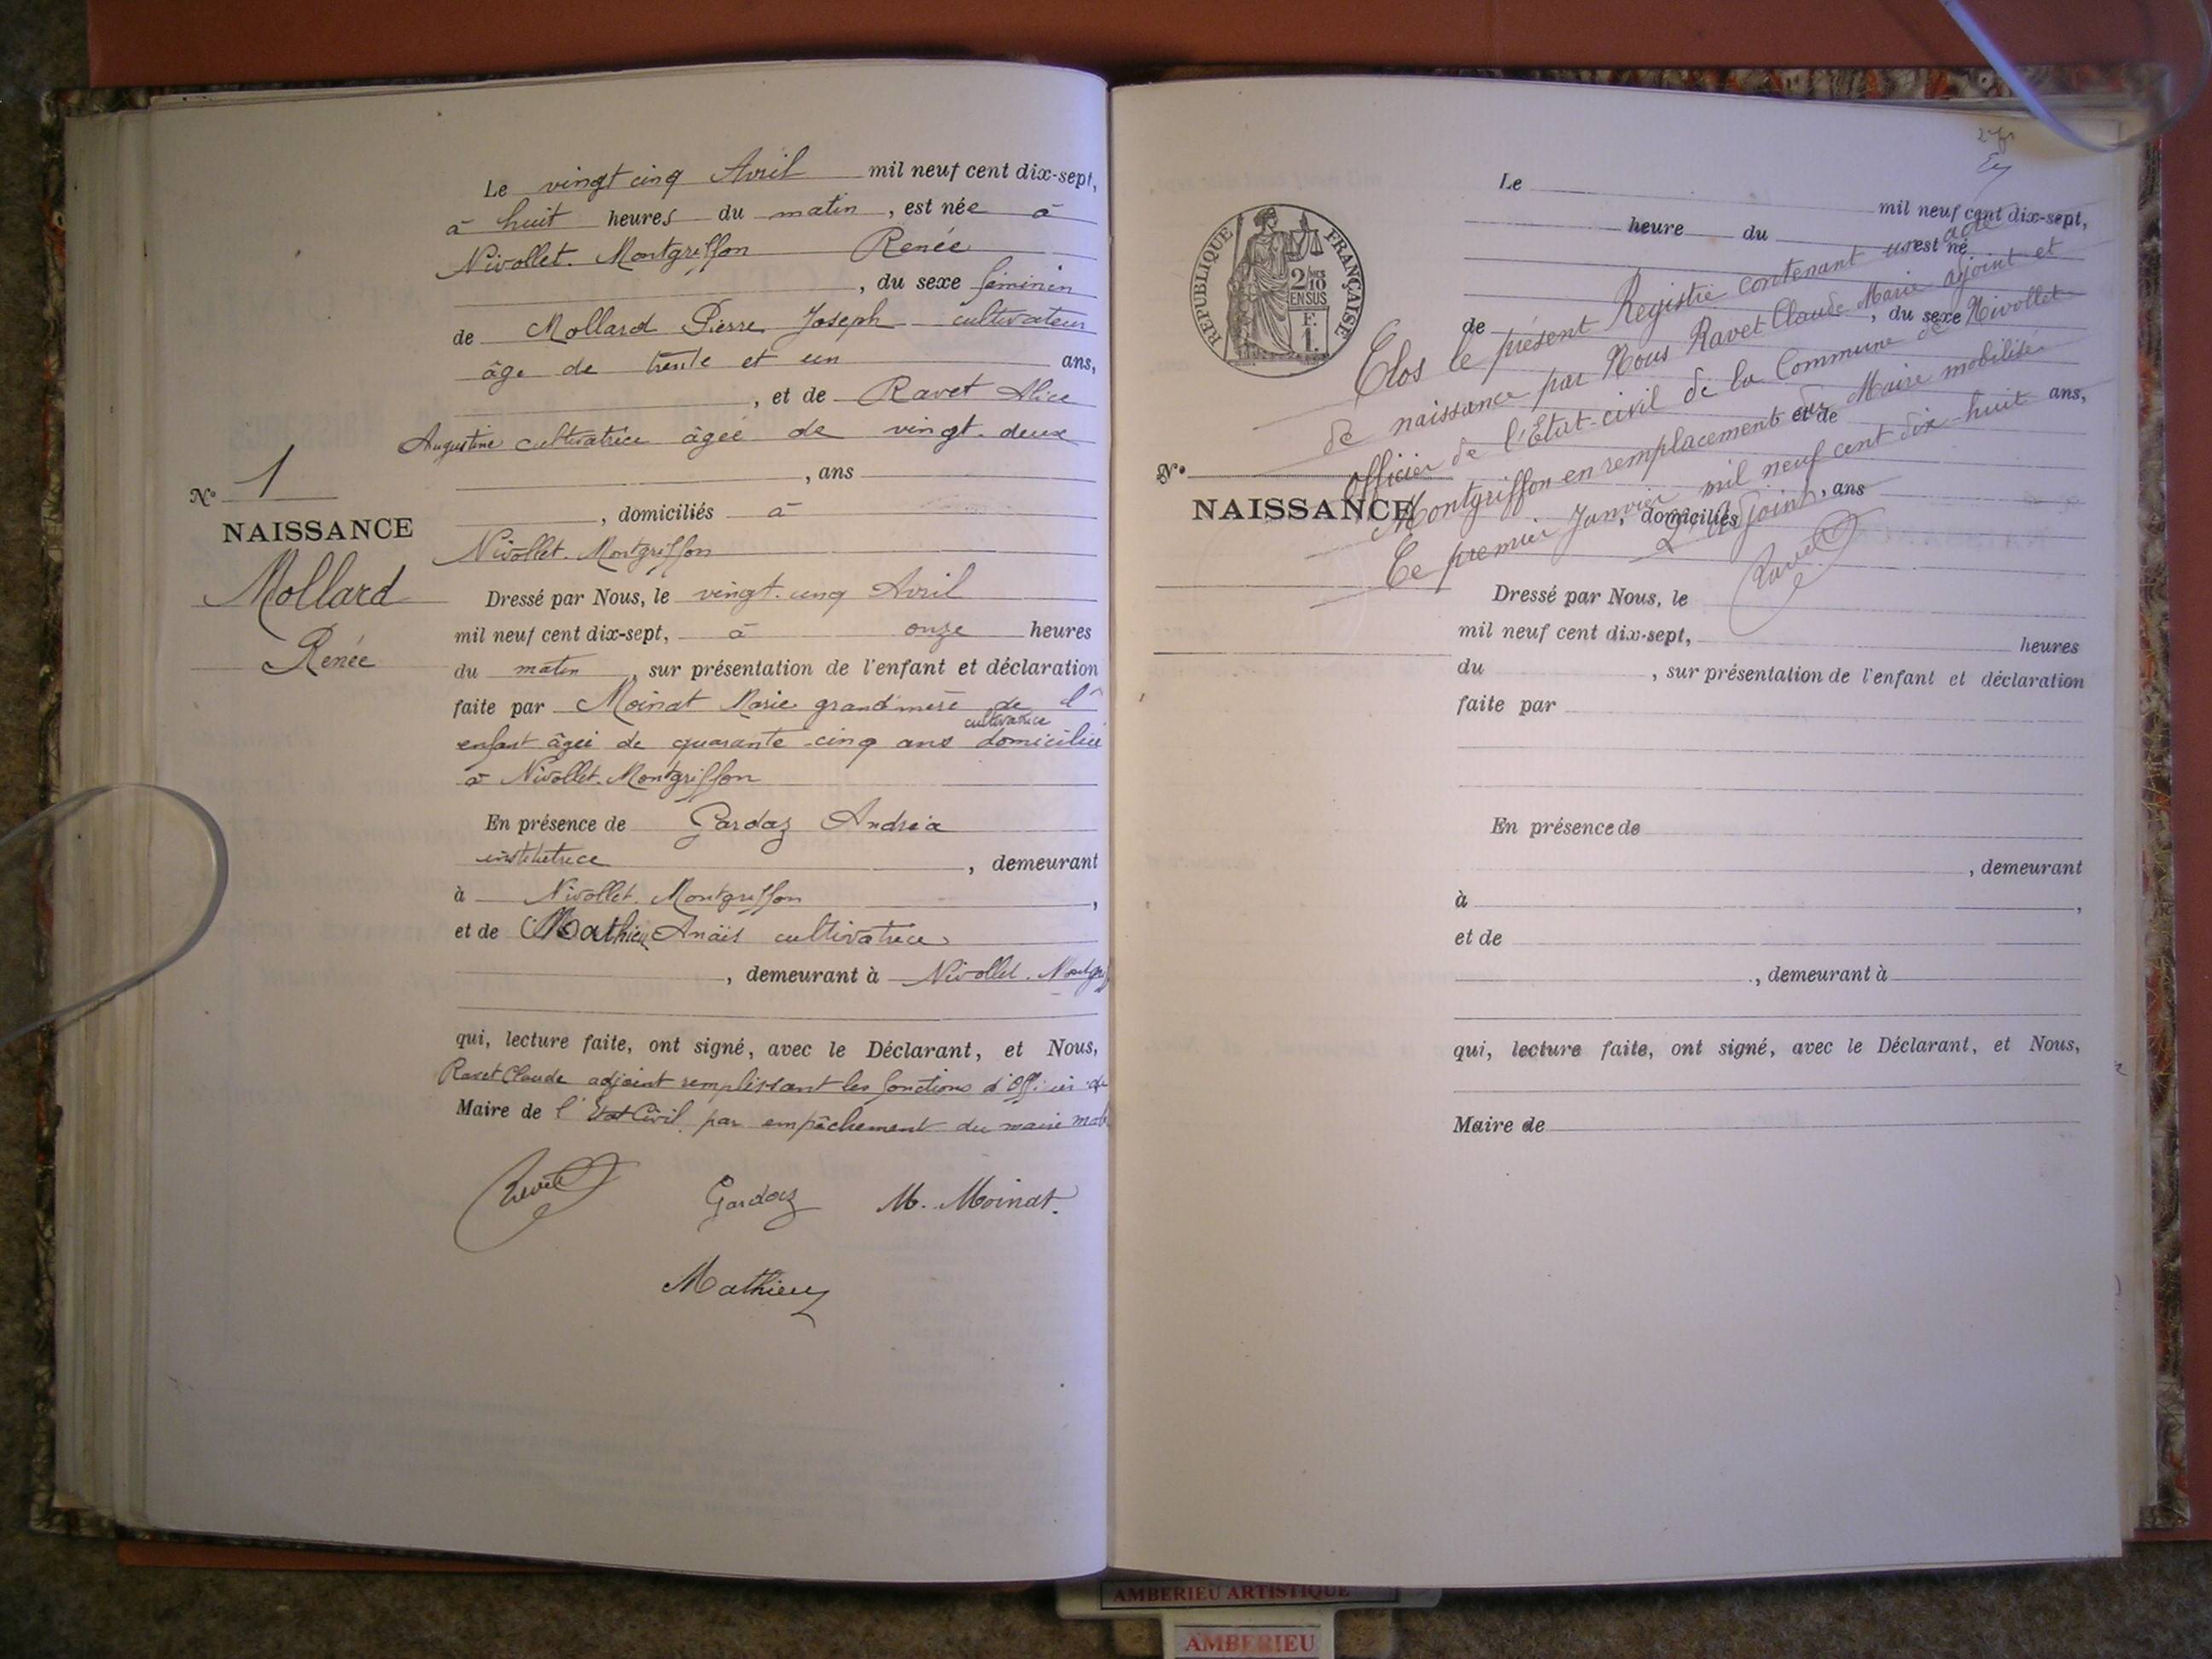 Le vingt cinq Avril mil neuf cent dix-sept,
à huit heures du matin, est née à
Nivollet. Montgriffon Renée
, du sexe féminin
de Mollard Pierre Joseph cultivateur
âgé de trente et un ans,
, et de Ravet Alice
Augustine cultivatrice âgée de vingt-deux
, ans
, domiciliés à
Nivollet. Montgriffon
Nº 1
NAISSANCE
Mollard
Renée
Dressé par Nous, le vingt-cinq Avril
mil neuf cent dix-sept, à onze heures
du matin, sur présentation de l'enfant et déclaration
faite par Moinat Marie grand'mère de l'
cultivatrice
enfant âgée de quarante-cinq ans domiciliée
à Nivollet. Montgriffon
En présence de Gardaz Andréa
institutrice, demeurant
à Nivollet. Montgriffon,
et de Mathieu Anaïs cultivatrice
, demeurant à Nivollet. Montgrif
qui, lecture faite, ont signé, avec le Déclarant, et Nous,
Ravet Claude adjoint remplissant les fonctions d'Officier de
Maire de l'Etat Civil par empêchement du maire mob
Ravet Gardaz M. Moinat.
Mathieu
REPUBLIQUE FRANÇAISE
2/10
EN SUS
F.
1.
Le mil neuf cent dix-sept,
heure du est né
de , du sexe
et de ans,
, ans
, domiciliés
Clos le présent Registre contenant un acte
de naissance par Nous Ravet Claude Marie adjoint et
officier de l'Etat-civil de la Commune de Nivollet
Montgriffon en remplacement du Maire mobilisé
Ce premier Janvier mil neuf cent dix-huit
L'adjoint
Ravet
Nº
NAISSANCE
Dressé par Nous, le
mil neuf cent dix-sept, heures
du , sur présentation de l'enfant et déclaration
faite par
En présence de
, demeurant
à ,
et de
, demeurant à
qui, lecture faite, ont signé, avec le Déclarant, et Nous,
Maire de
AMBERIEU ARTISTIQUE
AMBERIEU